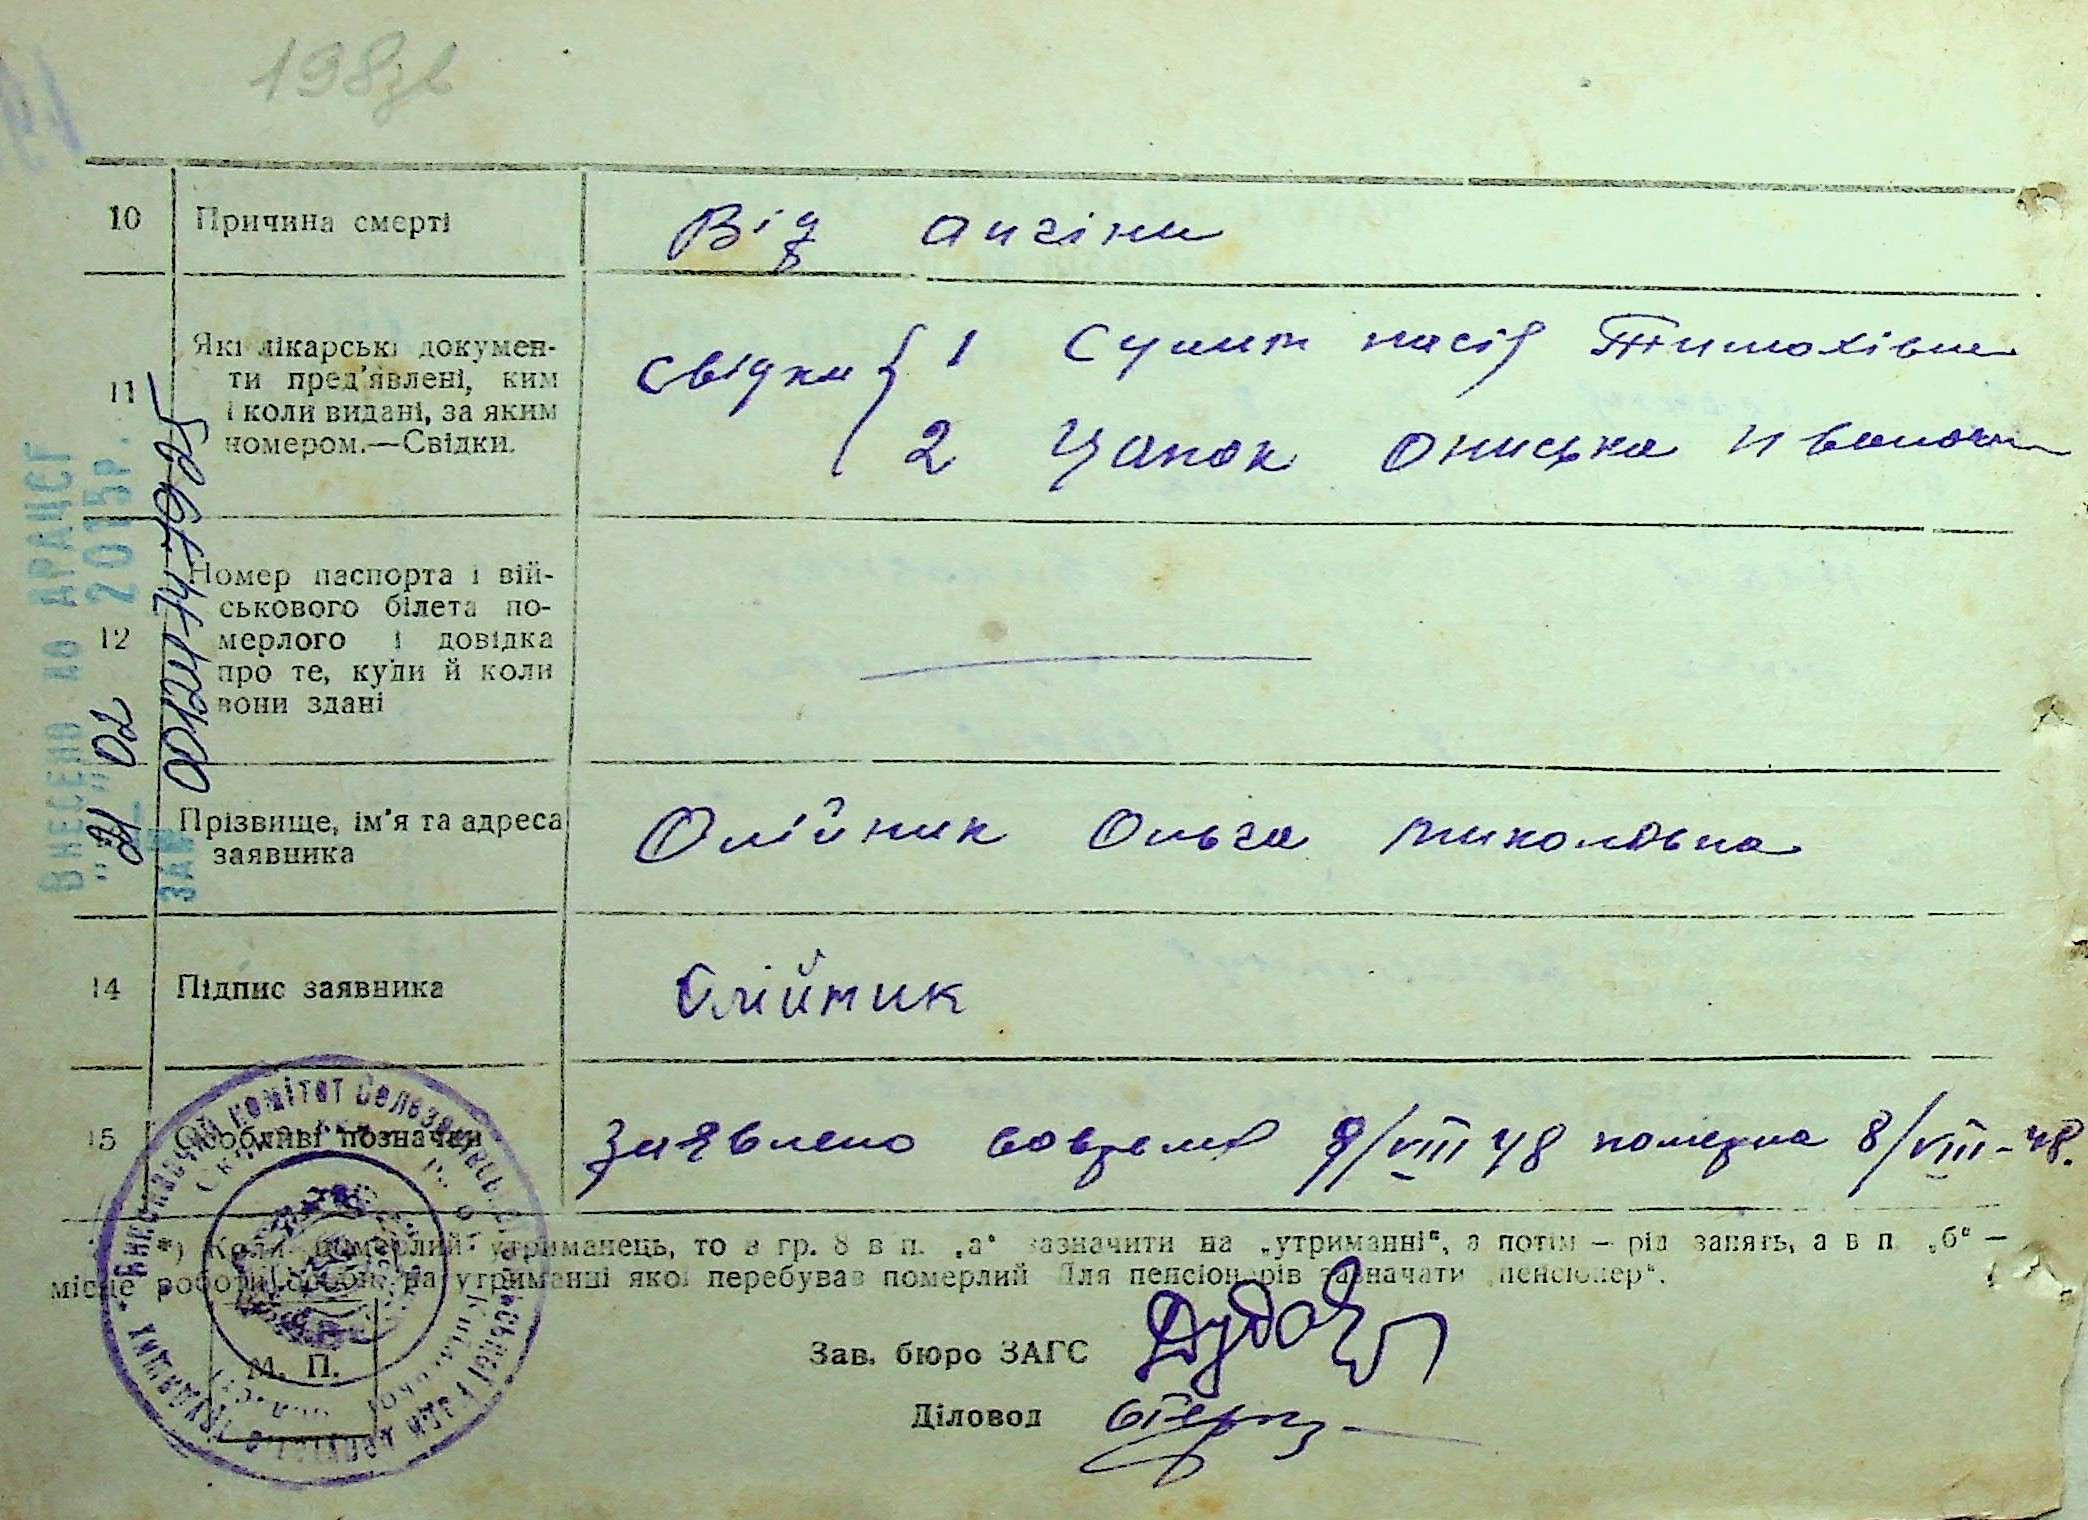 198зв
10 Причина смерті Від ангіни
11 Які лікарські докумен-
ти пред'явлені, ким
і коли видані, за яким
номером.—Свідки.
Свідки { 1 Сушт Тимохівна
2 Цапок Ониська Ивановна
12 Номер паспорта і вій-
ськового білета по-
мерлого і довідка
про те, куди й коли
вони здані
Прізвище, ім'я та адреса
заявника
Олійник Ольга Миколаївна
14 Підпис заявника Олійник
15 Особливі позначки Заявлено вовремя 9/VIII 48 померла 8/VIII-48.
*) Коли померлий утриманець, то в гр. 8 в п. „а" зазначити на „утриманні", а потім — рід занять, а в п. „б" —
місце роботи особи, на утриманні якої перебував померлий Для пенсіонерів зазначати „пенсіонер".
М. П.
Зав. бюро ЗАГС
Діловод
ВНЕСЕНО ДО ДРАЦСГ
"21" 02 2015р.
ЗАВ
00124747925
Виконавчий комітет сільської Ради депутатів трудящих